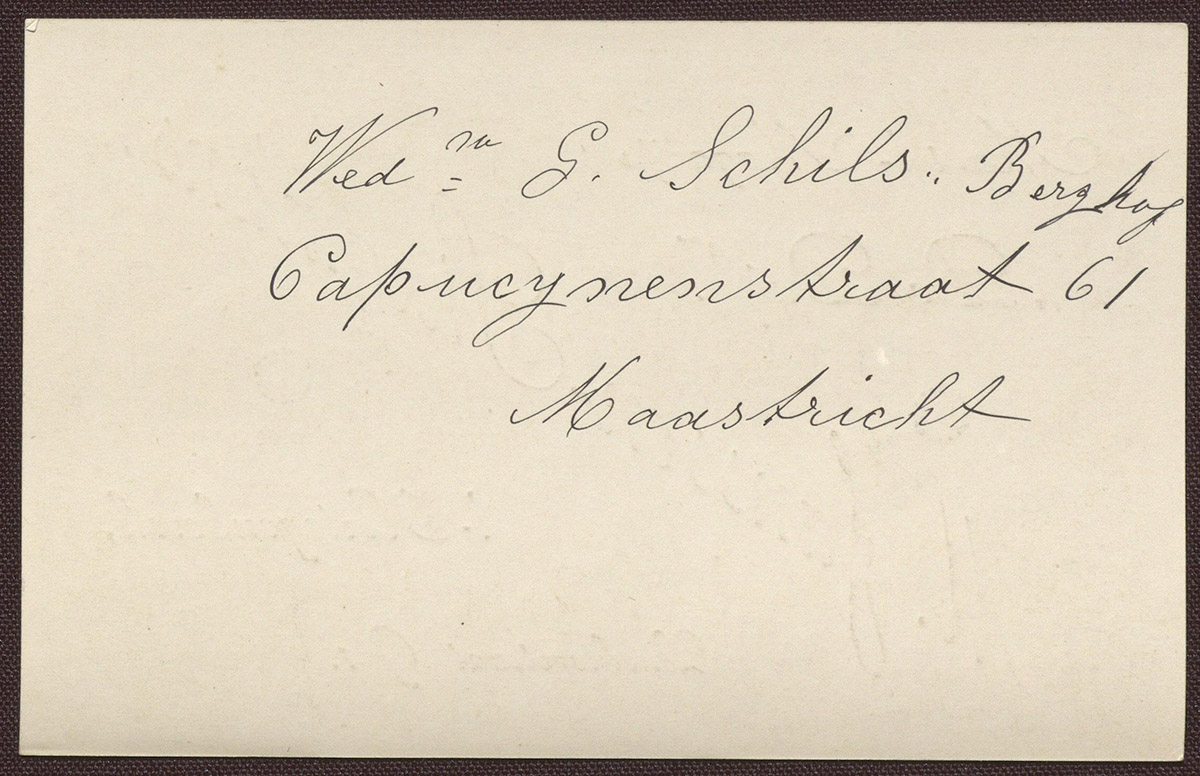 Wed we G. Schils. Berghof
Capucynenstraat 61
Maastricht